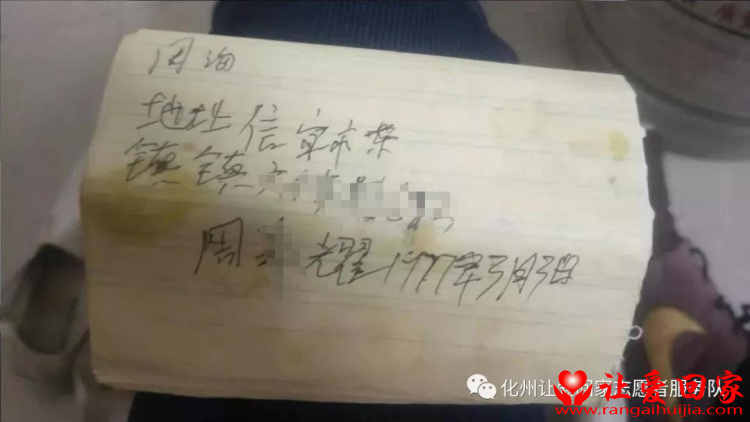 周海
地址信宜市荣
镇镇
周 光耀1977年3月3日
化州让爱回家志愿者服务队
让爱回家
www.rangaihuijia.com